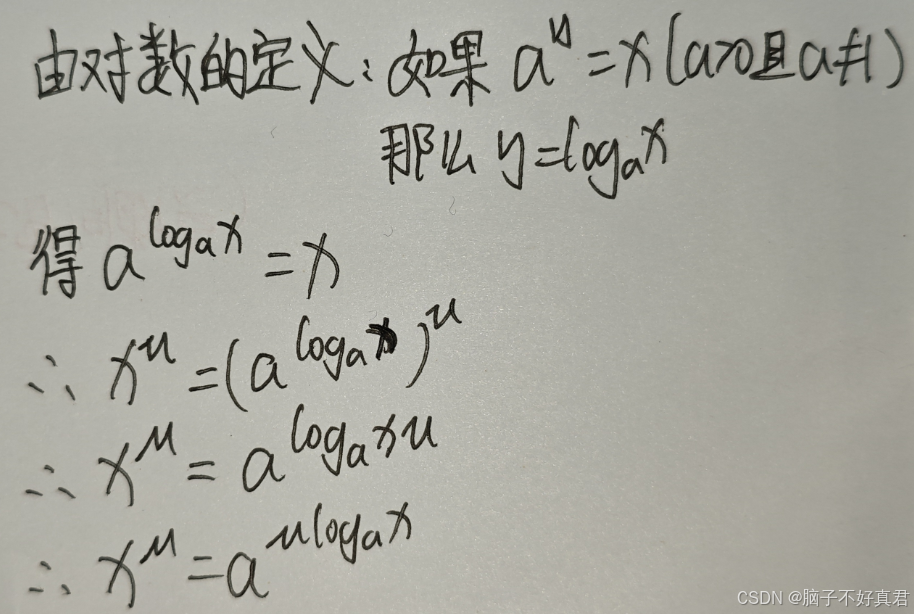 由对数的定义：如果 a^y = x (a>0且 a≠1)
那么 y = log_a x
得 a^{log_a x} = x
∴ x^u = (a^{log_a x})^u
∴ x^u = a^{log_a x u}
∴ x^u = a^{u log_a x}
CSDN @脑子不好真君